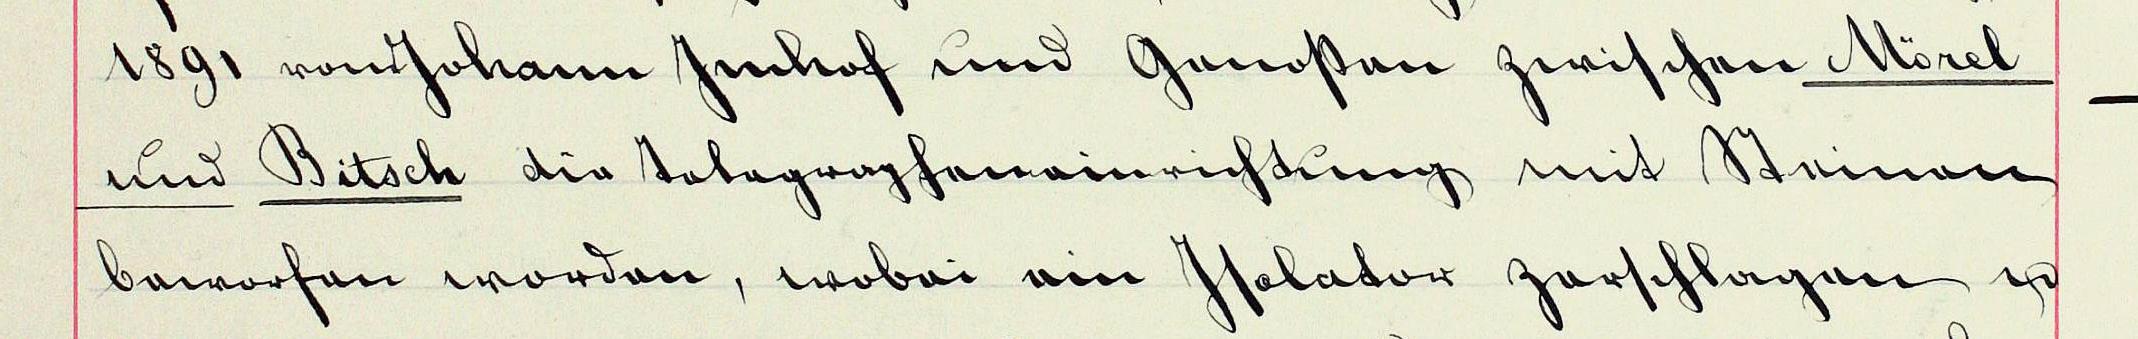 1891 von Johann Imhof und Genoßen zwischen Mörel
und Bitsch die Telegrapheneinrichtung mit Steinen
beworfen worden, wobei ein Isolator zerschlagen